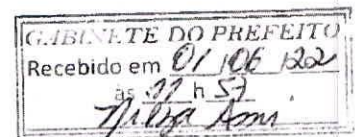 GABINETE DO PREFEITO
Recebido em 01/06/22
às 11 h 57
Nilza